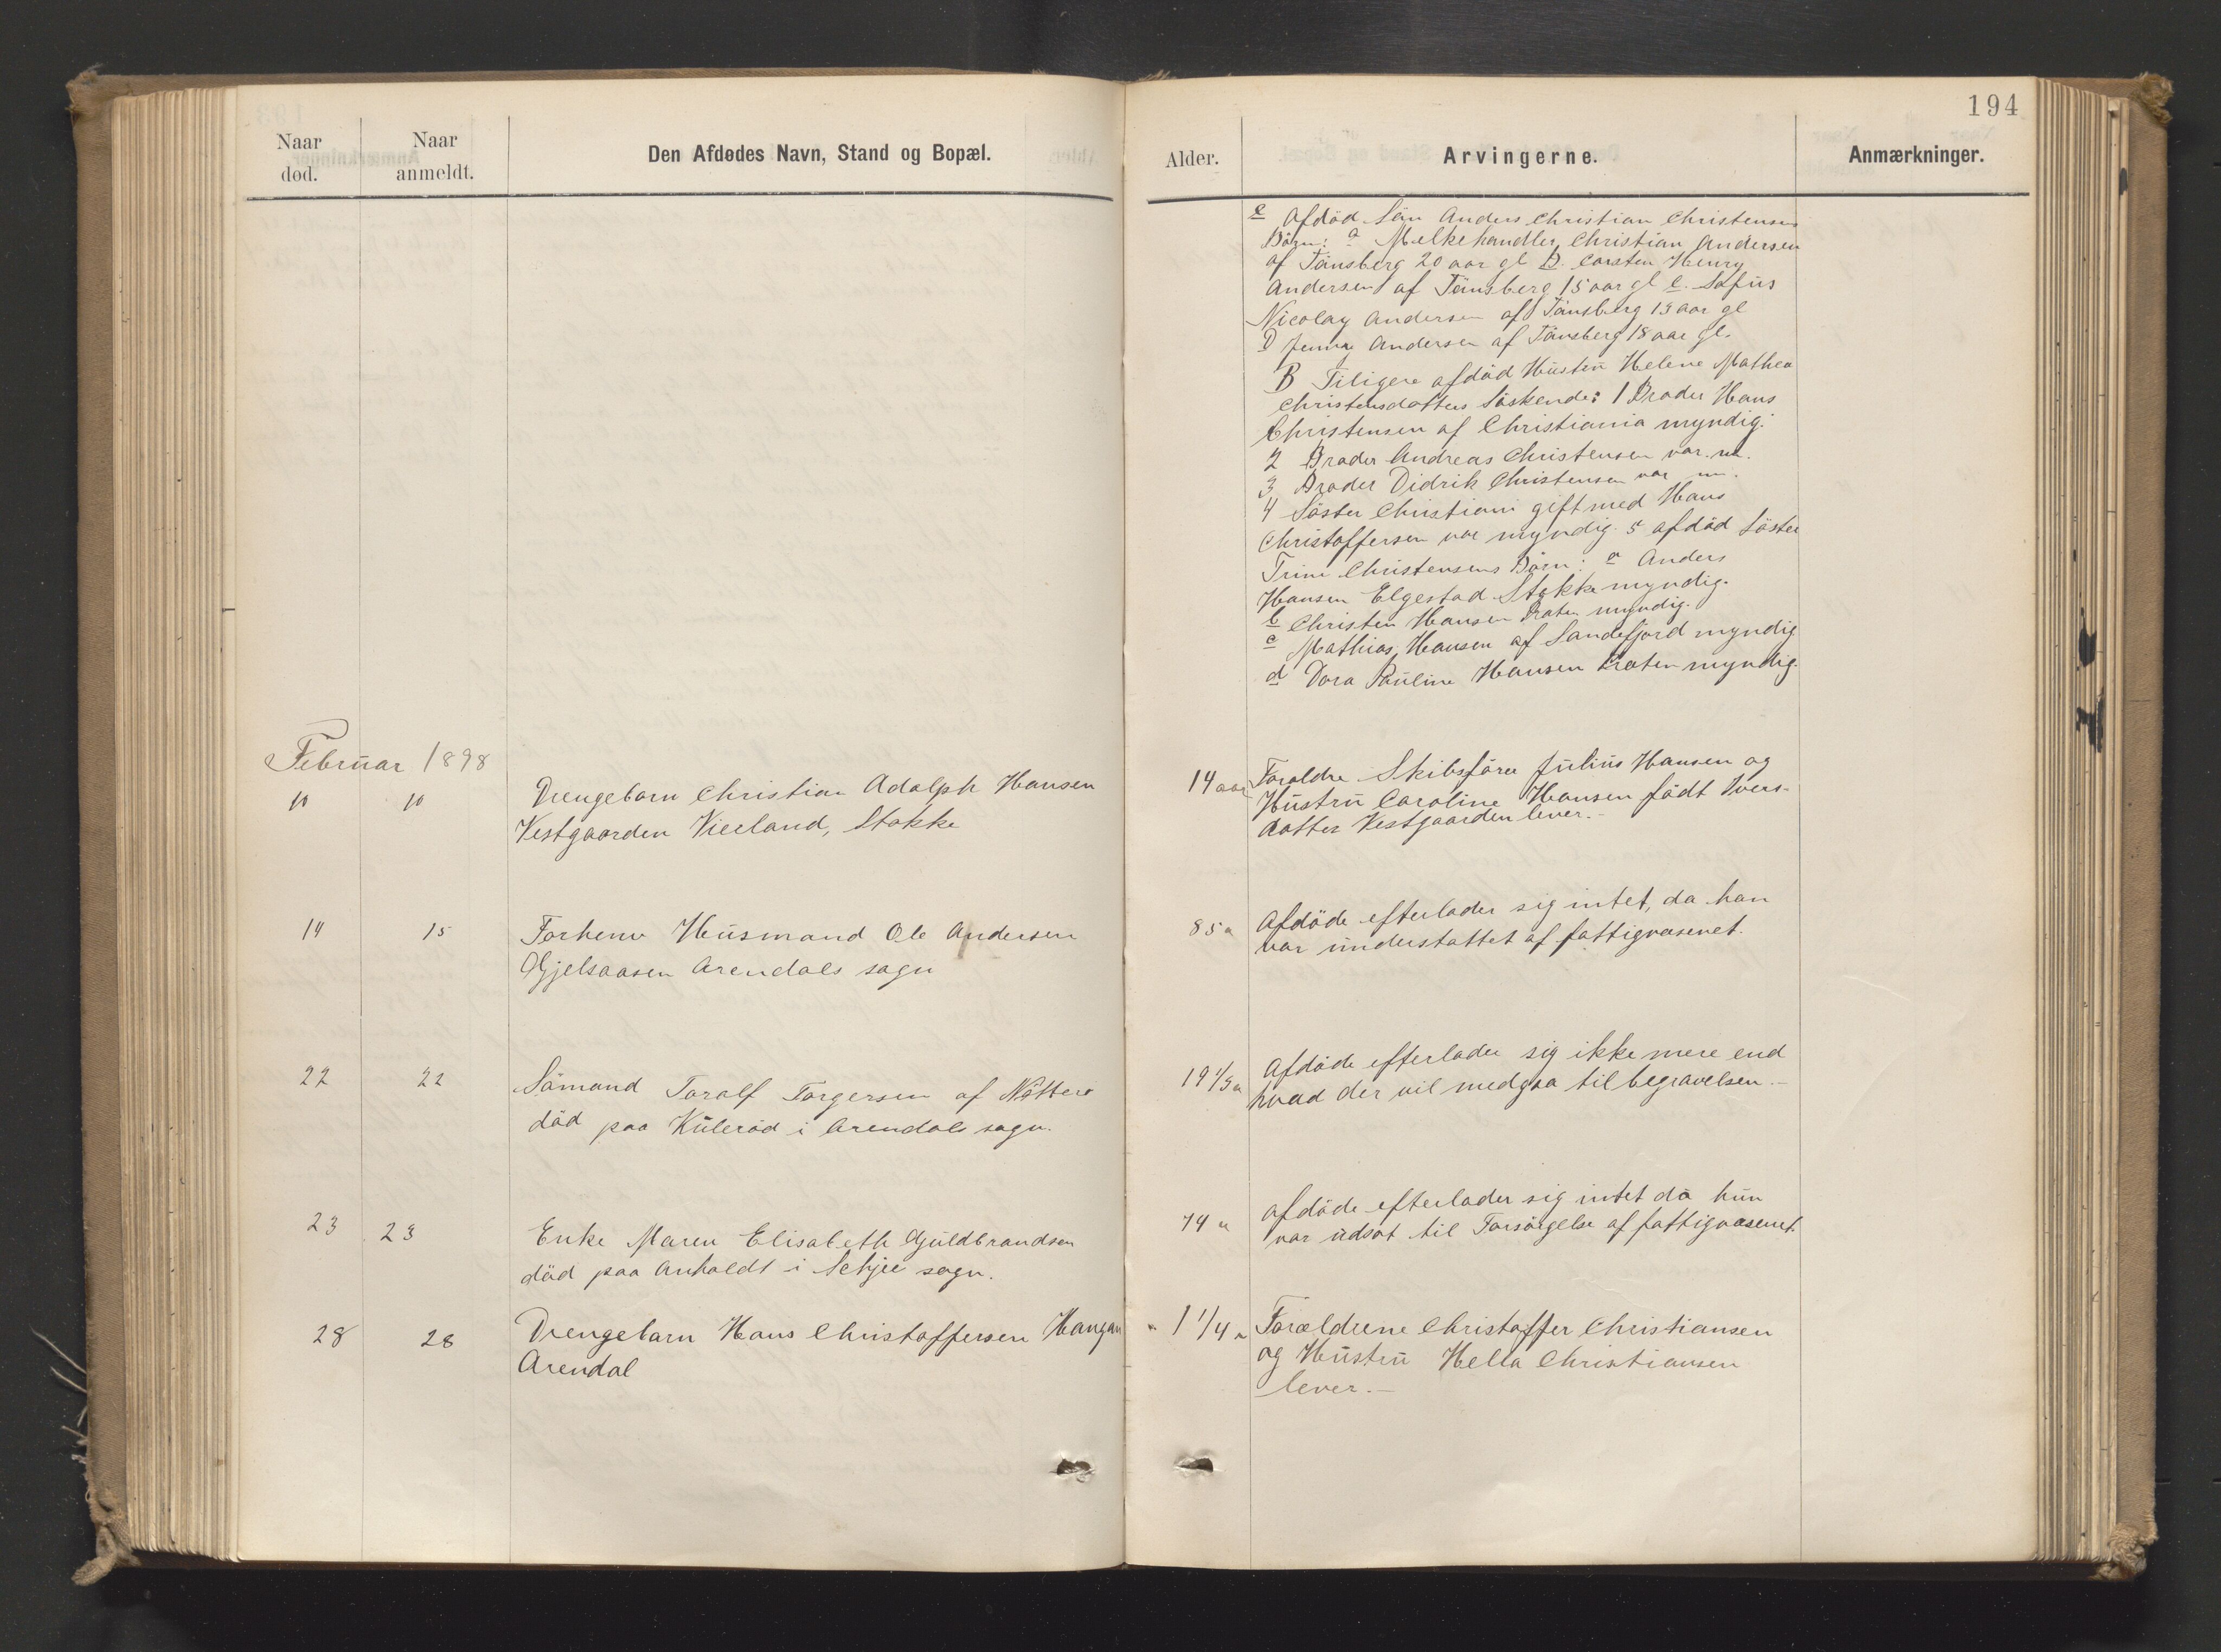 194
Naar død.
Naar anmeldt.
Den Afdødes Navn, Stand og Bopæl.
Alder.
Arvingerne.
Anmærkninger.
e Afdöd Sön Anders Christian Christensens
Börn: a Melkehandler Christian Andersen
af Tönsberg 20 aar gl B. Carsten Henry
Andersen af Tönsberg 15 aar gl C. Sofus
Nicolay Andersen af Tönsberg 13 aar gl
D Jenny Andersen af Tönsberg 18 aar gl.
B Tiligere afdöd Hustru Helene Mathea
Christensdatters Söskende: 1 Broder Hans
Christensen af Christiania myndig.
2 Broder Andreas Christensen var m.
3 Broder Didrik Christensen var m.
4 Söster Christiani gift med Hans
Christoffersen var myndig. 5 afdöd Söster
Trine Christensens Börn: a Anders
Hansen Elgestad Stokke myndig.
b Christen Hansen Braten myndig.
c Mathias Hansen af Sandefjord myndig
d Dora Pauline Hansen Braten myndig.
Februar 1898
10 10 Drengebarn Christian Adolph Hansen
Vestgaarden Vieeland, Stokke
14 aar Foraldre Skibsförer Julius Hansen og
Hustru Caroline Hansen födt Ivers-
datter Vestgaarden lever.-
14 15 Forhenv Husmand Ole Andersen
Gjelsaasen Arendals sogn
85 a Afdöde efterlader sig intet, da han
var understattet af fattigvæsenet.
22 22 Sömand Toralf Torgersen af Nötterö
död paa Kuleröd i Arendals sogn.
19 1/3 a Afdöde efterlader sig ikke mere end
hvad der vil medgaa til begravelsen.-
23 23 Enke Maren Elisabeth Guldbrandsen
död paa Anholdt i Schjee sogn.
74 a afdöde efterlader sig intet da hun
var udsat til Forsörgelse af fattigvæsenet.
28 28 Drengebarn Hans Christoffersen Haugan
Arendal
1 1/4 a Forældrene Christoffer Christiansen
og Hustru Hella Christiansen
lever.-